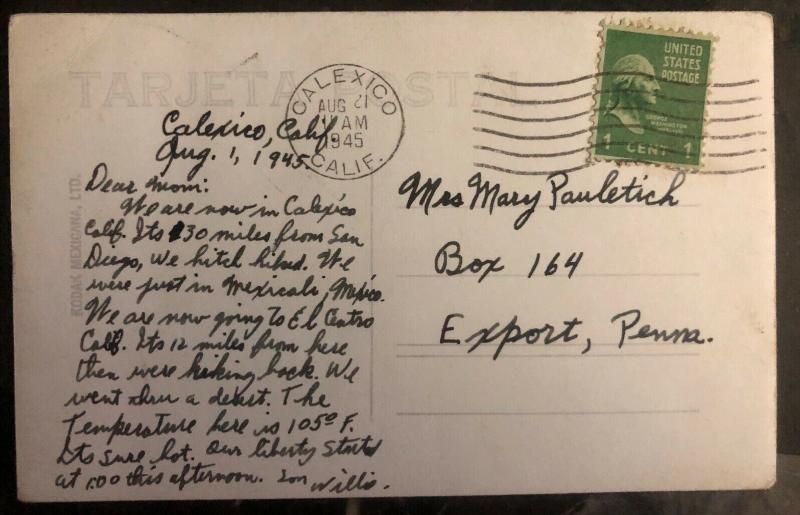 TARJETA POSTAL
CALEXICO
AUG 21
AM
1945
CALIF.
UNITED
STATES
POSTAGE
GEORGE
WASHINGTON
1 CENT 1
KODAK MEXICANA, LTD.
Calexico, Calif.
Aug. 1, 1945.
Dear Mom:
We are now in Calexico
Calif. Its 130 miles from San
Diego, We hitch hiked. We
were just in Mexicali, Mexico.
We are now going to El Centro
Calif. Its 12 miles from here
then were hiking back. We
went thru a desert. The
Temperature here is 105° F.
Its sure hot. Our liberty started
at 1:00 this afternoon. Son Willis.
Mrs Mary Pauletich
Box 164
Export, Penna.